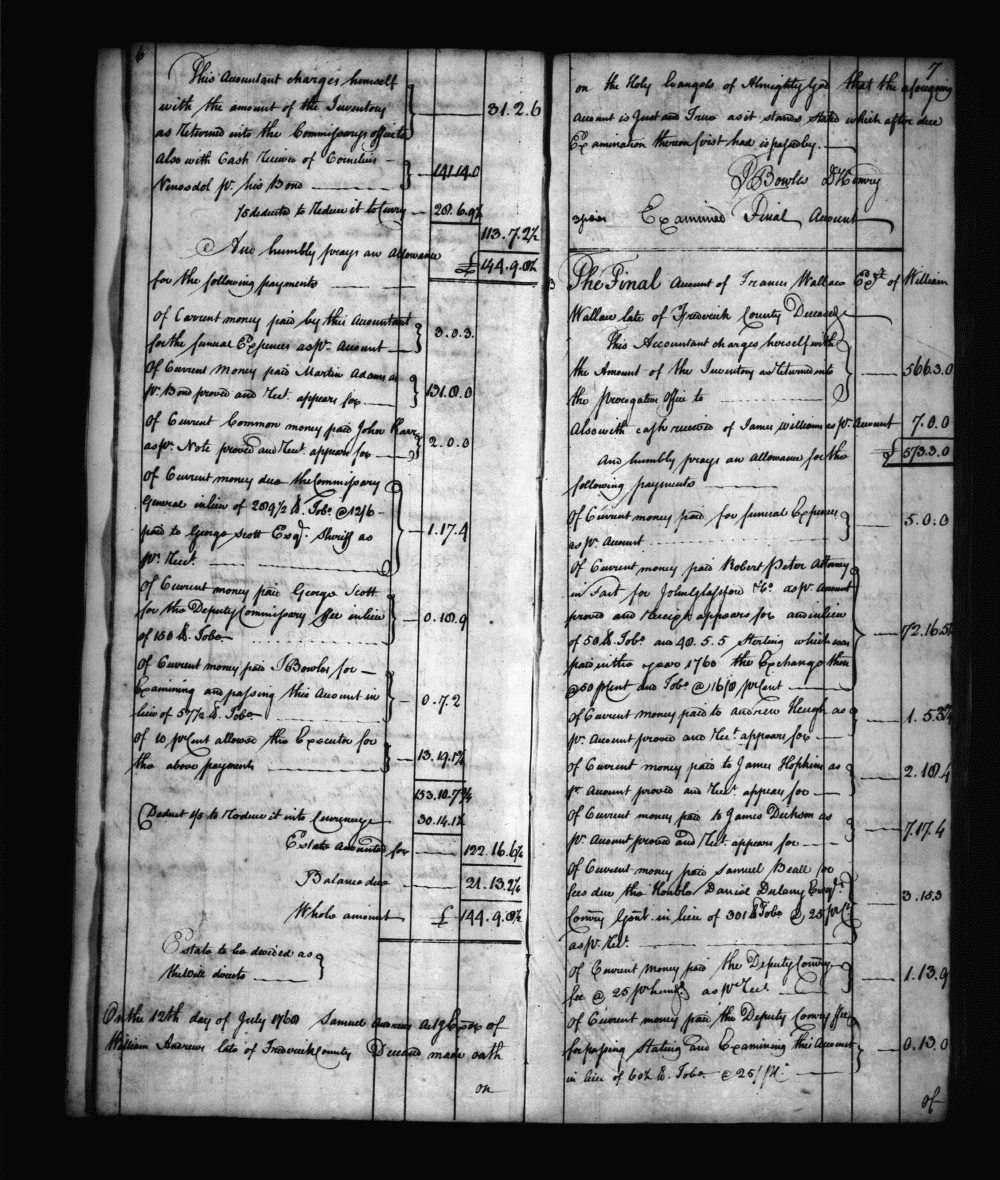 6
This Accountant charges himself
with the amount of the Inventory
as Returned into the Commissarys office to
31.2.6
Also with Cash Receive of Cornelius
Vinosdol pr. his Bond
141.14.0
deducted to Reduce it to Curry
28.6.9½
113.7.2½
And humbly prays an Allowance
£ 144.9.8½
for the following payments
Of Current money paid by this Accountant
for the funeral Expences as pr. Account
3.0.3
Of Current Money paid Martin Adams as
pr. Bond proved and Rect. appears for
131.0.0
Of Current Common money paid John Karr
as pr. Note proved and Rect. appears for
2.0.0
Of Current money due the Commissary
General in lieu of 289½ lb. Tobo. @ 12/6
paid to George Scott Esqr. Sheriff as
pr. Rect.
1.17.4
Of Current money paid George Scott
for the Deputy Commissary Fee in lieu
of 150 lb. Tobo
0.18.9
Of Current money paid J Bowles for
Examining and passing this Account in
lieu of 57½ lb. Tobo
0.7.2
Of 10 pr. Cent allowed this Executor for
the above payments
13.19.1½
153.10.7¾
Deduct 1/5 to Reduce it into Currency
30.14.1½
Estate Accounted for
122.16.6¼
Balance due
21.13.2¼
Whole amount
£ 144.9.8½
Estate to be divided as
the Will directs
On the 12th day of July 1760 Samuel Andrews actg Exor of
William Andrews late of Frederick County Deceased made oath
on
7
on the Holy Evangels of Almighty God that the aforegoing
Account is Just and True as it stands Stated which after due
Examination thereon first had is passed by.
J Bowles Dy Comry
Examined Final Account
The Final Account of Frances Wallace Ex. of William
Wallace late of Frederick County Deceased
This Accountant charges herself with
the Amount of the Inventory as Returned into
the prerogative Office to
566.3.0
Also with cash received of James Williams as pr. Account
7.0.0
And humbly prays an Allowance for the
£ 573.3.0
following payments
Of Current money paid for funeral Expences
as pr. Account
5.0.0
Of Current money paid Robert Peter Attorney
in Fact for John Glassford & Co. as pr. Account
proved and Receipt appears for and in lieu
of 50 lb. Tobo. and 40.5.5 Sterling which was
paid in the year 1760 the Exchange then
@ 50 pr Cent and Tobo. @ 16/8 pr Cent
72.16.5½
Of Current money paid to Andrew Heugh as
pr. Account proved and Rect. appears for
1.5.3¾
Of Current money paid to James Hopkins as
pr Account proved and Rect. appears for
2.18.4
Of Current money paid to James Dickson as
pr. Account proved and Rect. appears for
7.17.4
Of Current money paid Samuel Beall for
fees due the Honble. Daniel Dulany Esqr.
Comry Genl. in lieu of 301 lb Tobo @ 25 pr Ct.
as pr. Rect.
3.15.3
Of Current money paid the Deputy Comry
fee @ 25 pr hund as pr Rect
1.13.9
Of Current money paid the Deputy Comry ffee
for passing Stating and Examining this Account
in lieu of lb. Tobo. @ 25/
0.13.0
of